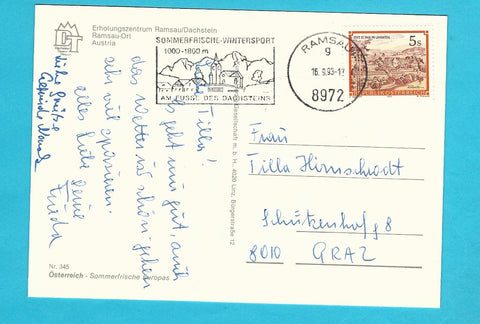 Erholungszentrum Ramsau/Dachstein
Ramsau-Ort
Austria
SOMMERFRISCHE-WINTERSPORT
1000-1800 m
AM FUSSE DES DACHSTEINS
RAMSAU
g
16. 9.93-
8972
5s
STIFT ST. PAUL IM LAVANTTAL
REPUBLIK ÖSTERREICH
Tilla!
geht uns gut, auch
das Wetter ist schön, gehen
sehr viel spazieren.
alles Liebe deine
Frieda
Liebe Grüße
Gesellschaft m. b. H., 4020 Linz, Bürgerstraße 12
Frau
Tilla Hirnschrodt
Schützenhofg 8
8010 GRAZ
Nr. 345
Österreich - Sommerfrische Europas